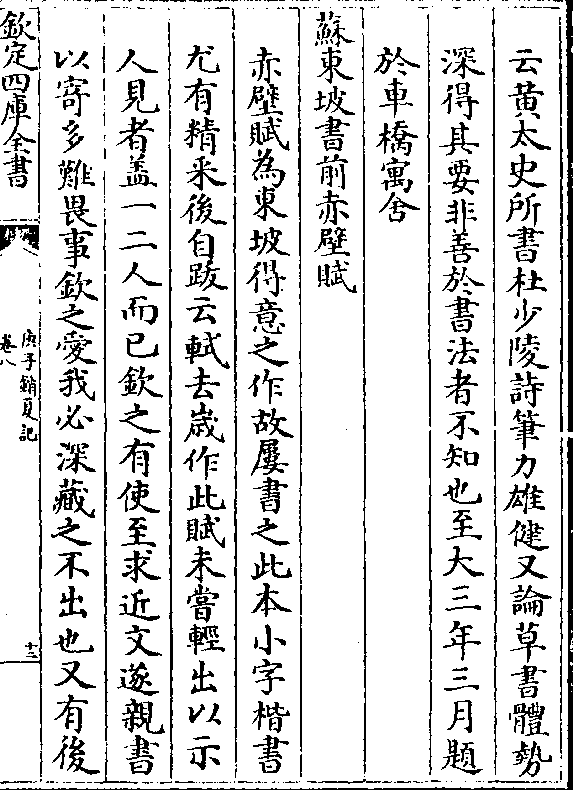 云黄太史所書杜少陵詩筆力雄健又論草書體勢
深得其要非善於書法者不知也至大三年三月題
於車橋寓舍
蘇東坡書前赤壁賦
赤壁賦為東坡得意之作故屢書之此本小字楷書
尤有精采後自跋云軾去歳作此賦未嘗輕出以示
人見者盖一二人而已欽之有使至求近文遂親書
以寄多難畏事欽之愛我必深藏之不出也又有後
欽定四庫全書
庚子銷夏記
卷八
十三